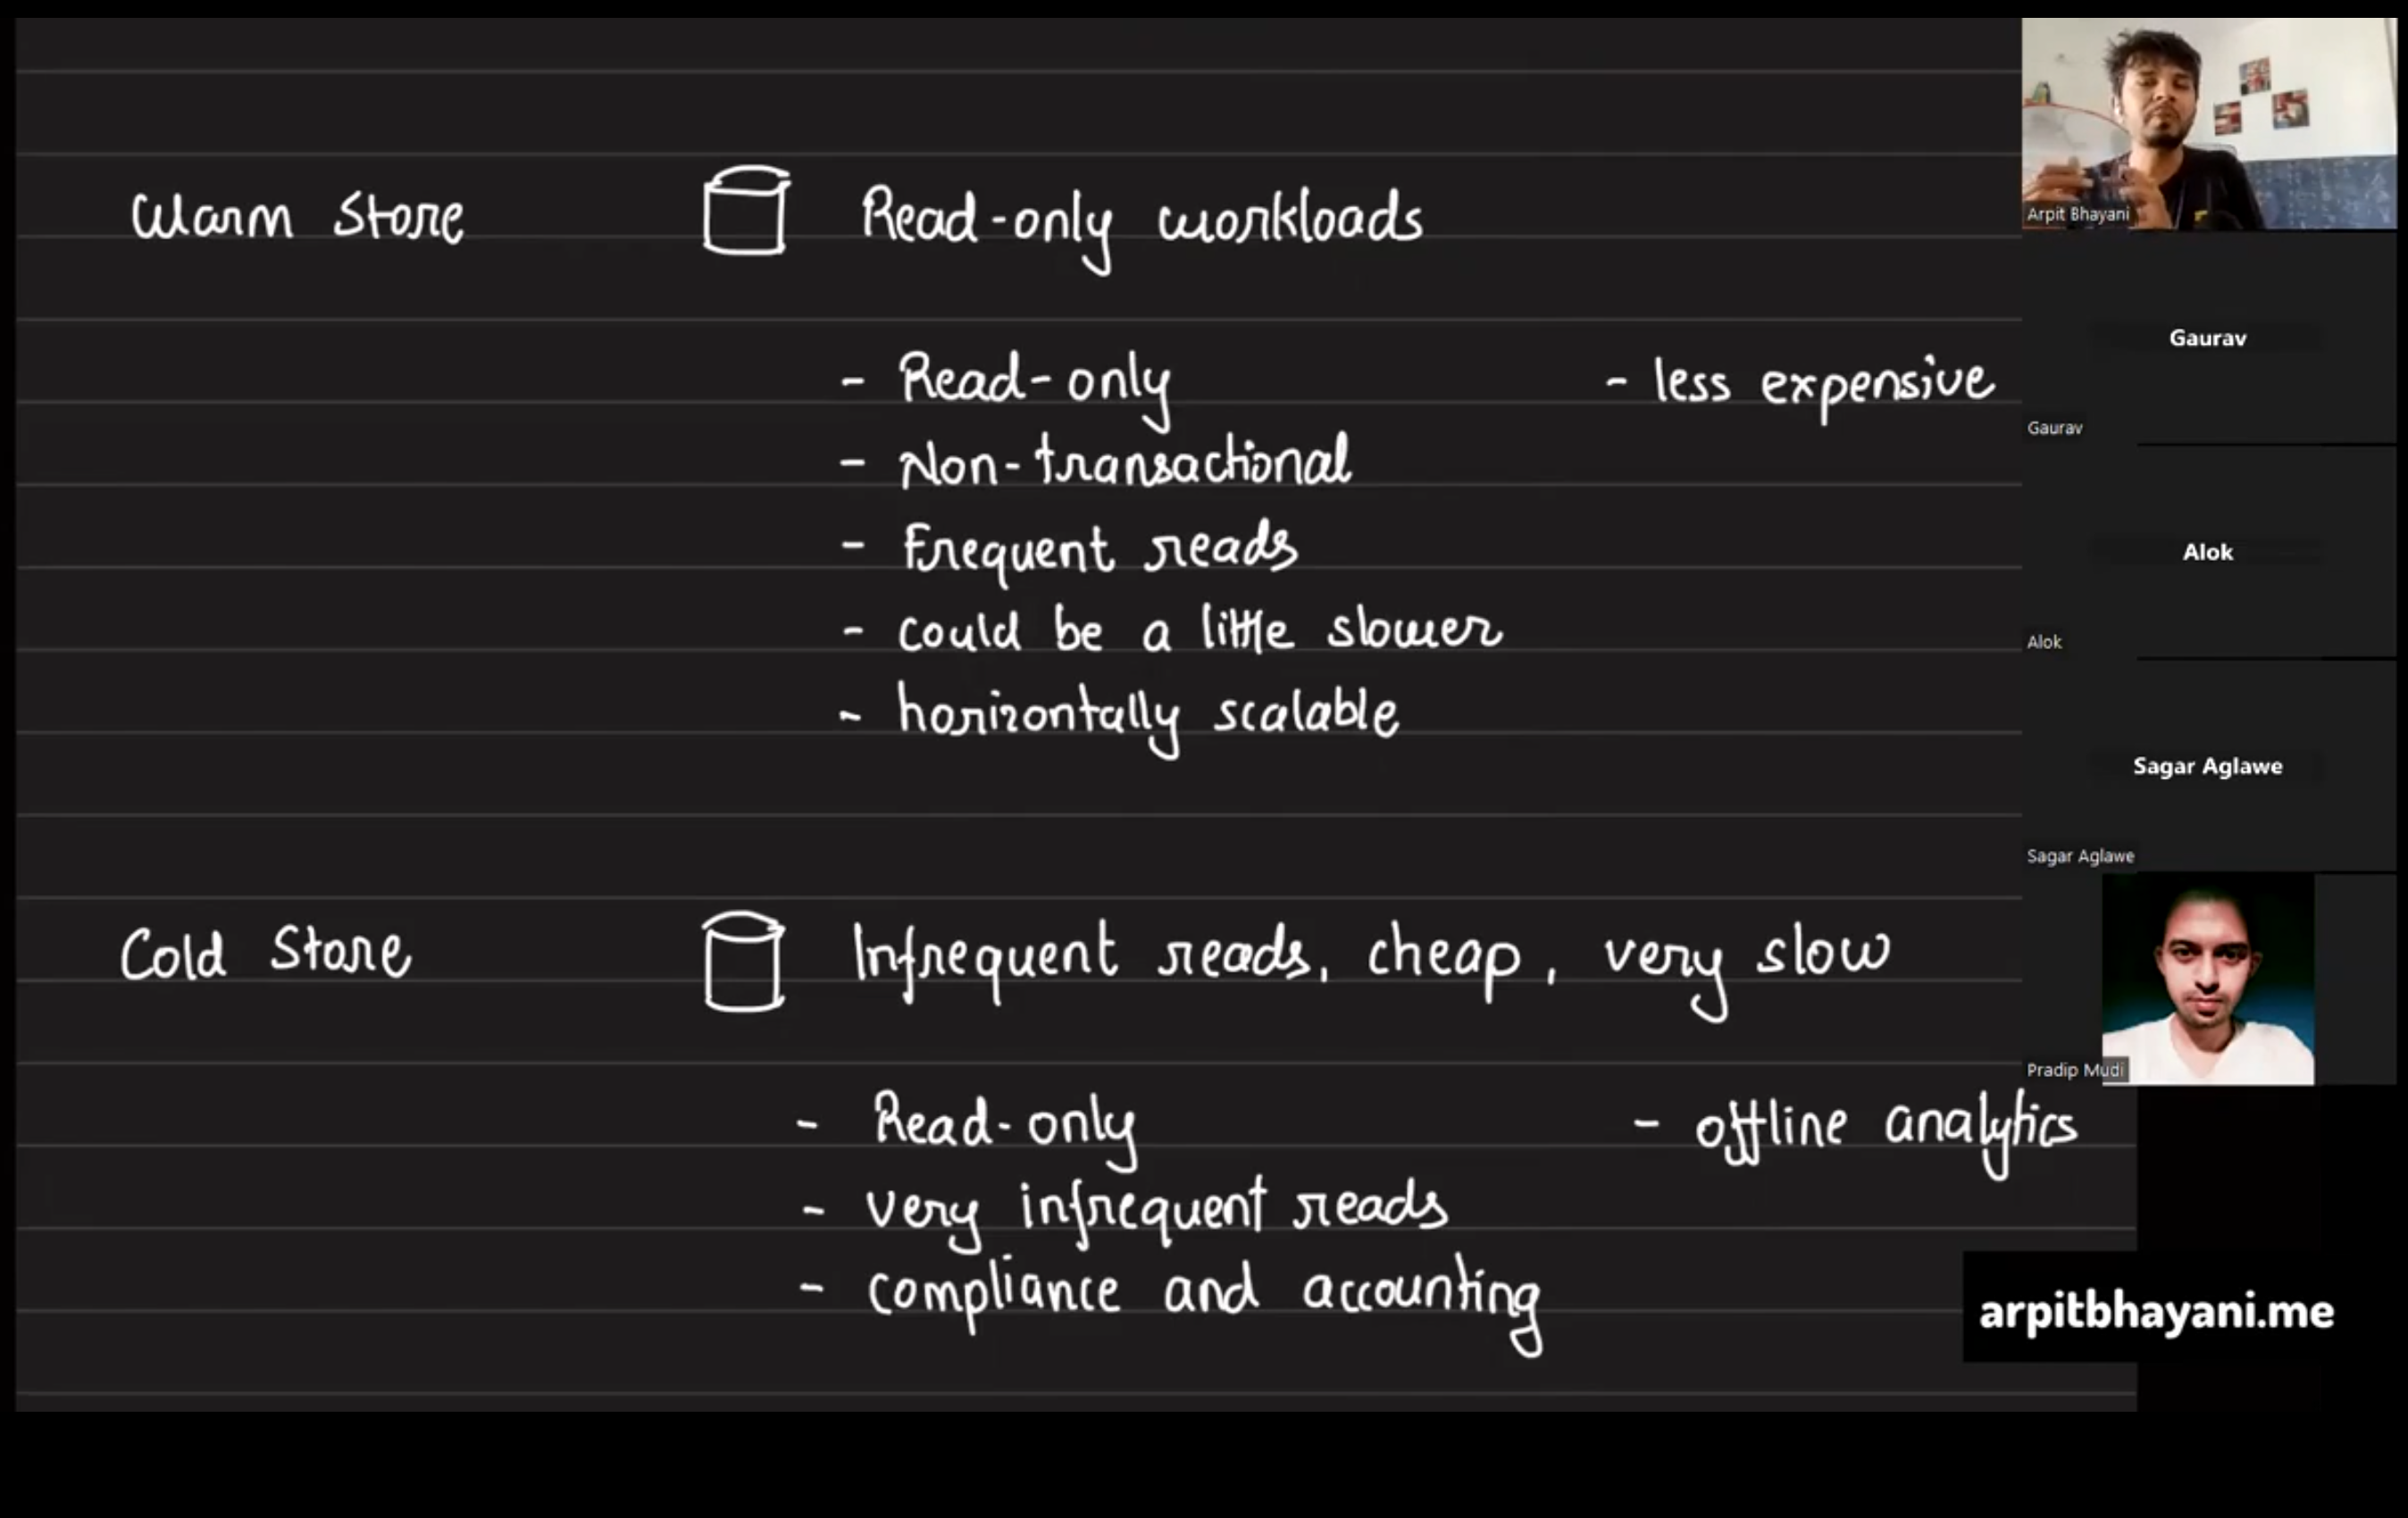 Warm Store
Read-only workloads
- Read-only
- less expensive
- Non-transactional
- Frequent reads
- could be a little slower
- horizontally scalable
Cold Store
Infrequent reads, cheap, very slow
- Read-only
- offline analytics
- very infrequent reads
- compliance and accounting
Arpit Bhayani
Gaurav
Gaurav
Alok
Alok
Sagar Aglawe
Sagar Aglawe
Pradip Mudi
arpitbhayani.me